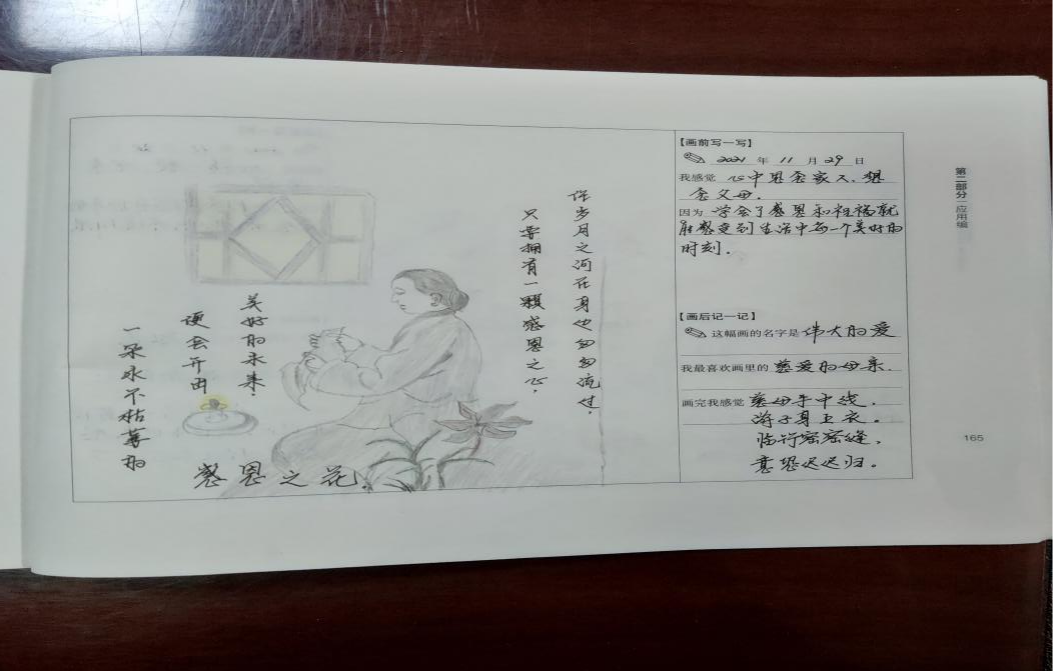 许岁月之河在身边匆匆流过,
只要拥有一颗感恩之心,
美好的未来.
便会开出
一朵永不枯萎的
感恩之花.
【画前写一写】
2021 年 11 月 29 日
我感觉 心中思念家人.想
念父母.
因为 学会了感恩和祝福就
能感受到生活中每一个美好的
时刻.
【画后记一记】
这幅画的名字是 伟大的爱
我最喜欢画里的 慈爱的母亲.
画完我感觉 慈母手中线,
游子身上衣.
临行密密缝,
意恐迟迟归.
第二部分 应用编
165